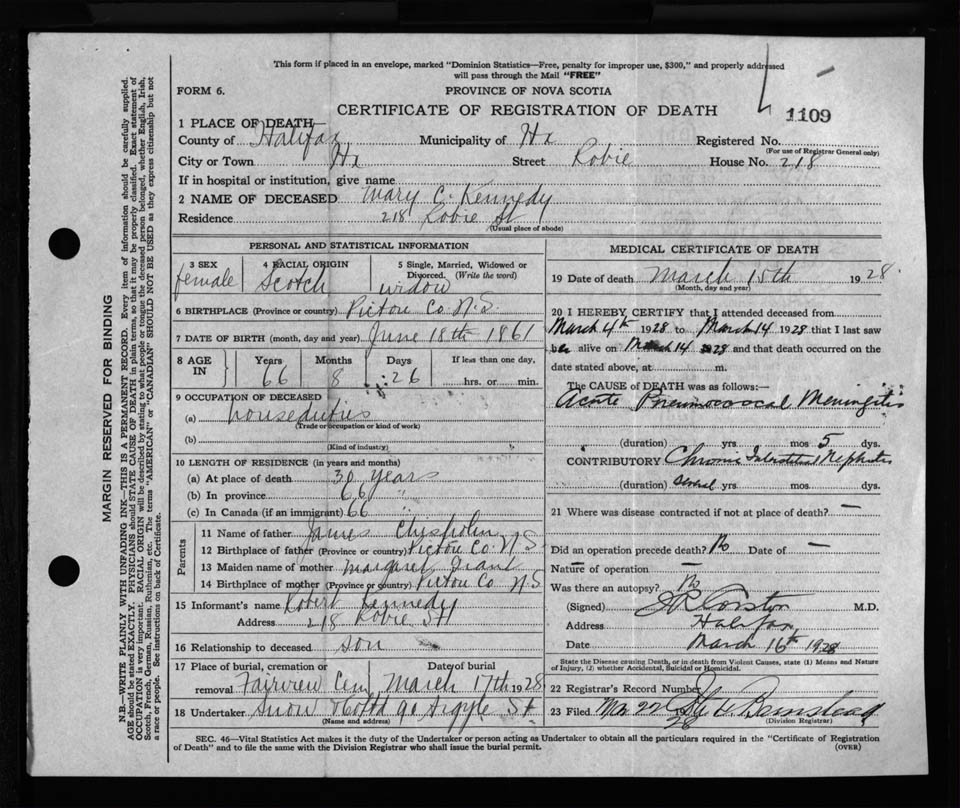 This form if placed in an envelope, marked "Dominion Statistics—Free, penalty for improper use, $300," and properly addressed
will pass through the Mail "FREE"
FORM 6.
PROVINCE OF NOVA SCOTIA
CERTIFICATE OF REGISTRATION OF DEATH
1109
1 PLACE OF DEATH
County of Halifax Municipality of Hx Registered No.
(For use of Registrar General only)
City or Town Hx Street Robie House No. 218
If in hospital or institution, give name
2 NAME OF DECEASED Mary C. Kennedy
Residence 218 Robie St
(Usual place of abode)
PERSONAL AND STATISTICAL INFORMATION
3 SEX 4 RACIAL ORIGIN 5 Single, Married, Widowed or Divorced. (Write the word)
female Scotch widow
6 BIRTHPLACE (Province or country) Pictou Co. N.S.
7 DATE OF BIRTH (month, day and year) June 18th 1861
8 AGE IN Years Months Days If less than one day,
66 8 26 hrs. or min.
9 OCCUPATION OF DECEASED
(a) houseduties
(Trade or occupation or kind of work)
(b)
(Kind of industry)
10 LENGTH OF RESIDENCE (in years and months)
(a) At place of death 30 years
(b) In province 66 "
(c) In Canada (if an immigrant) 66 "
Parents
11 Name of father James Chisholm
12 Birthplace of father (Province or country) Pictou Co. N S
13 Maiden name of mother Margaret Grant
14 Birthplace of mother (Province or country) Pictou Co N.S
15 Informant's name Robert Kennedy
Address 218 Robie St
16 Relationship to deceased son
17 Place of burial, cremation or removal Day of burial
Fairview Cem March 17th 1928
18 Undertaker Snow & Co Ltd 90 Argyle St
(Name and address)
MEDICAL CERTIFICATE OF DEATH
19 Date of death March 15th 1928.
(Month, day and year)
20 I HEREBY CERTIFY that I attended deceased from
March 4th 1928 to March 14 1928 that I last saw
her alive on March 14 1928 and that death occurred on the
date stated above, at m.
The CAUSE of DEATH was as follows:—
Acute Pneumococcal Meningitis
(duration) yrs mos 5 dys.
CONTRIBUTORY Chronic Interstitial Nephritis
(duration) several yrs mos dys.
21 Where was disease contracted if not at place of death? —
Did an operation precede death? No Date of —
Nature of operation —
Was there an autopsy? No
(Signed) J R Corston M.D.
Address Halifax
Date March 16th 1928
State the Disease causing Death, or in death from Violent Causes, state (1) Means and Nature
of Injury, (2) whether Accidental, Suicidal or Homicidal.
22 Registrar's Record Number
23 Filed Mar 22 28 Barnstead
(Division Registrar)
SEC. 46—Vital Statistics Act makes it the duty of the Undertaker or person acting as Undertaker to obtain all the particulars required in the "Certificate of Registration
of Death" and to file the same with the Division Registrar who shall issue the burial permit.
(OVER)
MARGIN RESERVED FOR BINDING
N.B.—WRITE PLAINLY WITH UNFADING INK—THIS IS A PERMANENT RECORD. Every item of information should be carefully supplied.
AGE should be stated EXACTLY. PHYSICIANS should STATE CAUSE OF DEATH in plain terms, so that it may be properly classified. Exact statement of
OCCUPATION is very important. RACIAL ORIGIN will be described by stating to what people or tongue the deceased person belonged, whether English, Irish,
Scotch, French, German, Russian, Ruthenian, etc. The terms "AMERICAN" or "CANADIAN" SHOULD NOT BE USED as they express citizenship but not
a race or people. See instructions on back of Certificate.